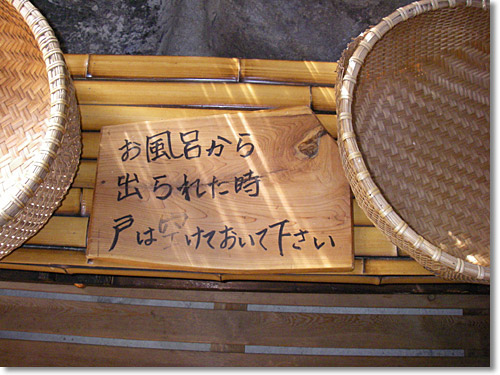 お風呂から
出られた時
戸は空けておいて下さい